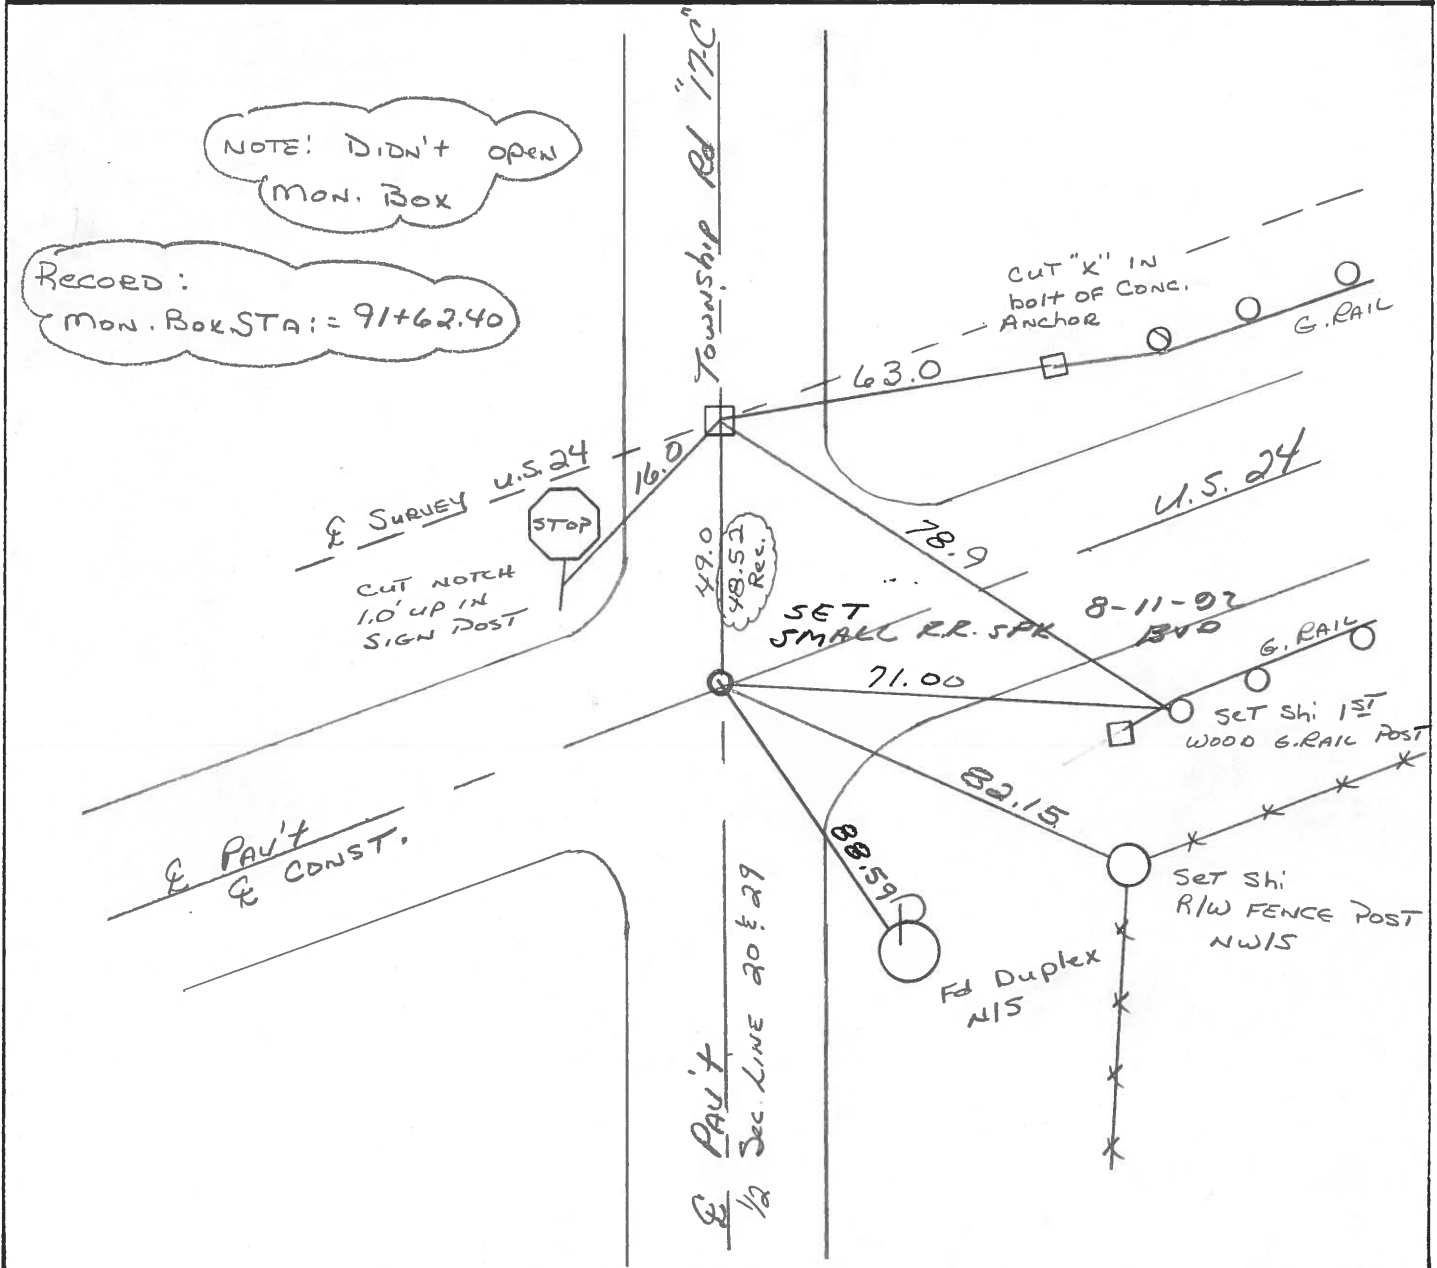 NOTE: DIDN't open
MON. BOX
RECORD:
MON. BOX STA: = 91+62.40
Township Rd "17-C"
CUT "X" IN
bolt OF CONC.
ANCHOR
G. RAIL
63.0
℄ SURVEY U.S. 24
16.0
STOP
CUT NOTCH
1.0' UP IN
SIGN POST
49.0
48.52
Rec.
78.9
U.S. 24
SET
SMALL R.R. SPK
8-11-92
BVD
G. RAIL
71.00
SET Shi 1ST
WOOD G.RAIL POST
82.15
88.59
℄ PAV't
℄ CONST.
SET Shi
R/W FENCE POST
NW/S
Fd Duplex
N/S
℄ PAV't
1/2 Sec. LINE 20 & 29